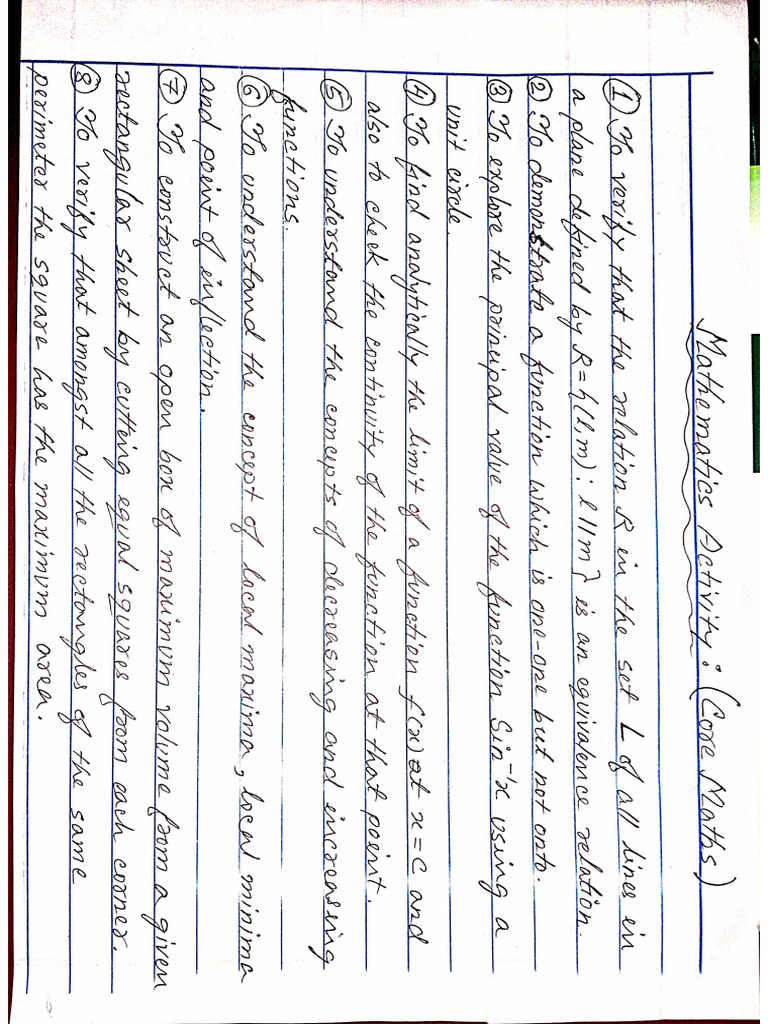 Mathematics Activity: (Core Maths)
① To verify that the relation R in the set L of all lines in
a plane defined by R = {(l, m) : l || m} is an equivalence relation.
② To demonstrate a function which is one-one but not onto.
③ To explore the principal value of the function Sin⁻¹x using a
unit circle.
④ To find analytically the limit of a function f(x) at x = C and
also to check the continuity of the function at that point.
⑤ To understand the concepts of decreasing and increasing
functions.
⑥ To understand the concept of local maxima, local minima
and point of inflection.
⑦ To construct an open box of maximum volume from a given
rectangular sheet by cutting equal squares from each corner.
⑧ To verify that amongst all the rectangles of the same
perimeter the square has the maximum area.